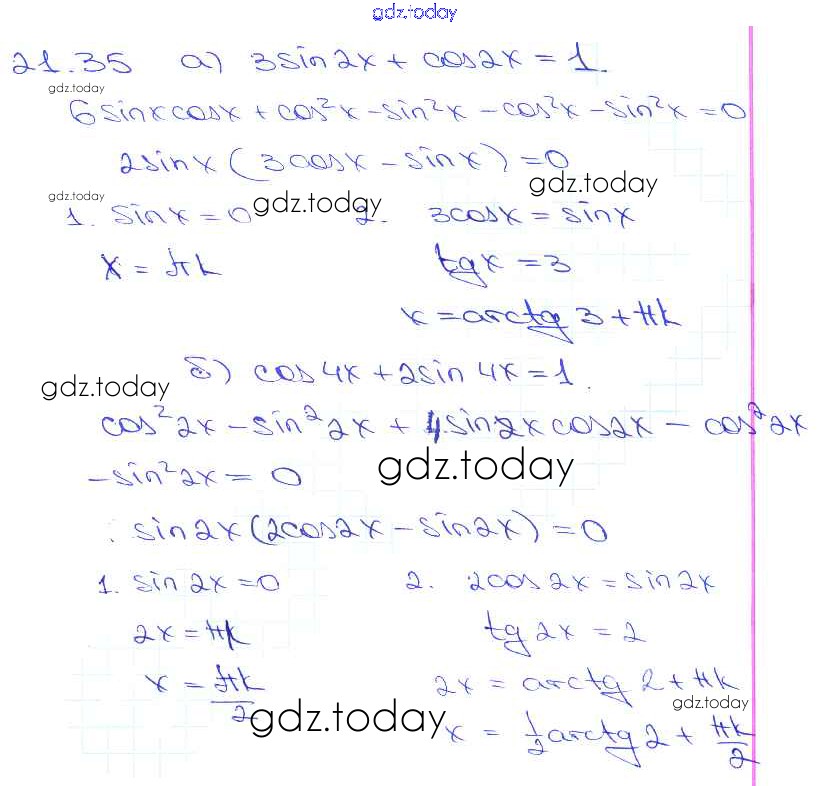 gdz.today
21.35 а) 3sin2x + cos2x = 1.
gdz.today
6sinxcosx + cos²x - sin²x - cos²x - sin²x = 0
2sinx(3cosx - sinx) = 0
gdz.today
gdz.today
1. sinx = 0 gdz.today 2. 3cosx = sinx
x = πk tgx = 3
x = arctg 3 + πk
б) cos4x + 2sin4x = 1.
gdz.today
cos²2x - sin²2x + 4sin2x cos2x - cos²2x
- sin²2x = 0
gdz.today
sin2x(2cos2x - sin2x) = 0
1. sin2x = 0 2. 2cos2x = sin2x
2x = πk tg2x = 2
x = πk/2 2x = arctg 2 + πk
gdz.today
gdz.today x = 1/2 arctg2 + πk/2